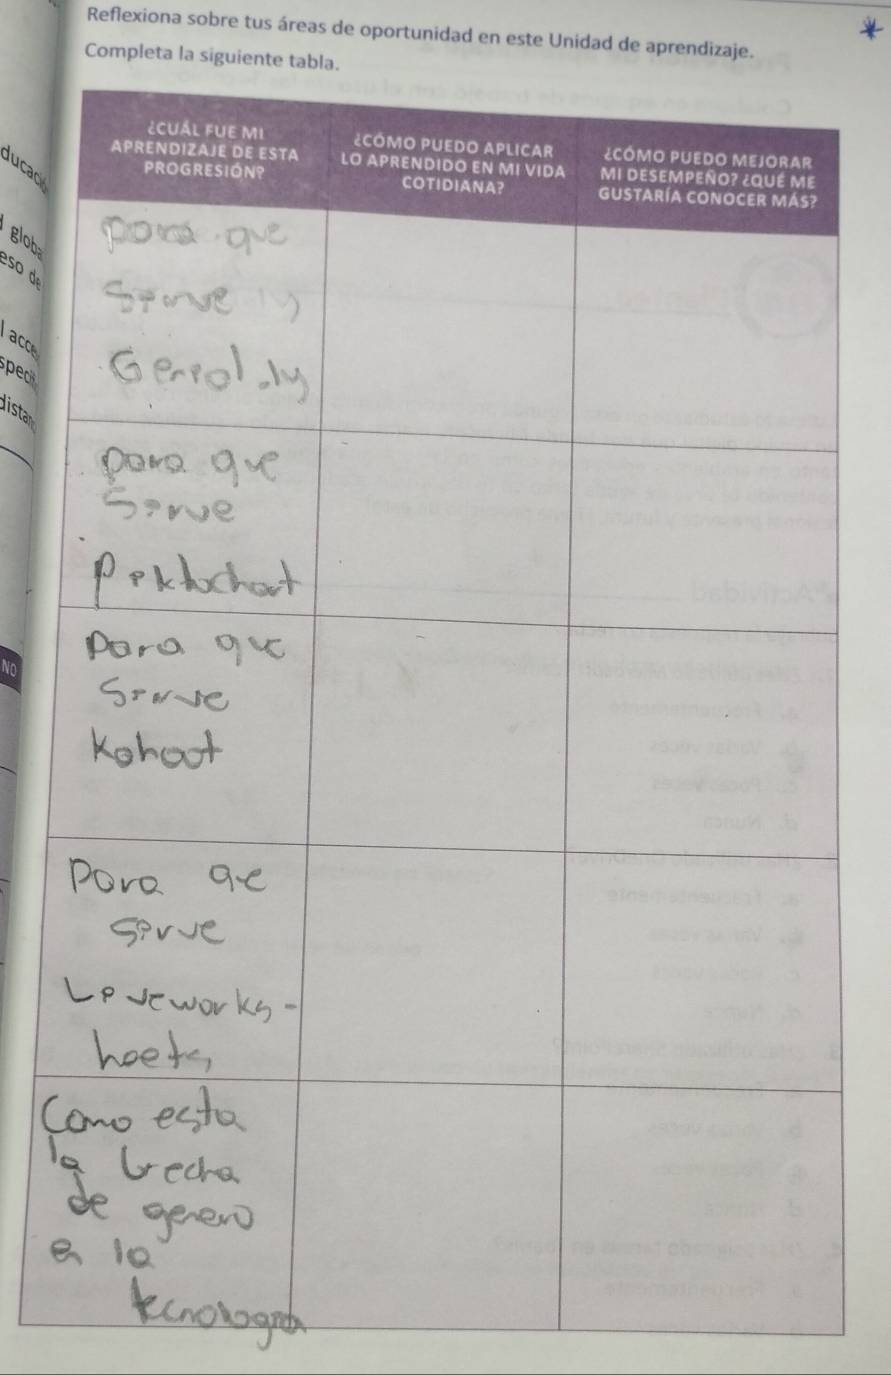 Reflexiona sobre tus áreas de oportunidad en este Unidad de aprendizaje.
Completa la siguiente tabla.
¿CUÁL FUE MI
APRENDIZAJE DE ESTA
PROGRESIÓN?
¿CÓMO PUEDO APLICAR
LO APRENDIDO EN MI VIDA
COTIDIANA?
¿CÓMO PUEDO MEJORAR
MI DESEMPEÑO? ¿QUÉ ME
GUSTARÍA CONOCER MÁS?
para que
Sirve
Genially
para que
Sirve
Piktochart
para que
Sirve
Kahoot
Para qe
sirve
Liveworks-
heets
Como esta
la brecha
de genero
en la
tecnologia
NO